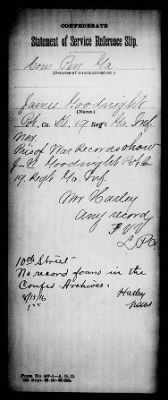 CONFEDERATE
Statement of Service Reference Slip.
Com Pen Ga
(Source of communication.)
James Goodnight
(Name.)
Pvt. Co. H. 19 Reg't Ga Inf
Nov.
Pris of War Records show
J. N. Goodnight Pvt Co
19 Regt Ga. Inf.
Mr Hasley
Any record
10th Street
No record found in the
Confed Archives.
8/15/16 Hasley
Form No.